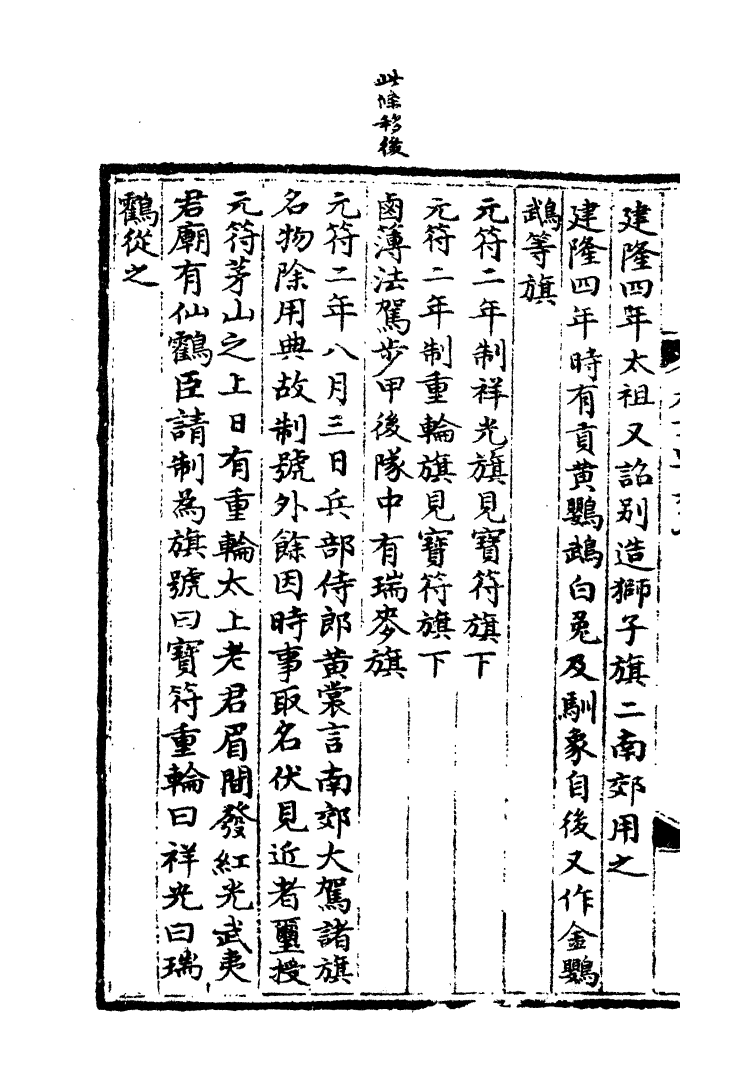 建隆四年太祖又詔别造獅子旗二南郊用之
建隆四年時有貢黄鸚鵡白兎及馴象自後又作金鸚
鵡等旗
元符二年制祥光旗見寶符旗下
元符二年制重輪旗見寶符旗下
此條移後
鹵薄法駕步甲後隊中有瑞麥旗
元符二年八月三日兵部侍郎黄裳言南郊大駕諸旗
名物除用典故制號外餘因時事取名伏見近者璽授
元符茅山之上日有重輪太上老君眉間發紅光武夷
君廟有仙鶴臣請制為旗號曰寶符重輪曰祥光曰瑞
鶴從之